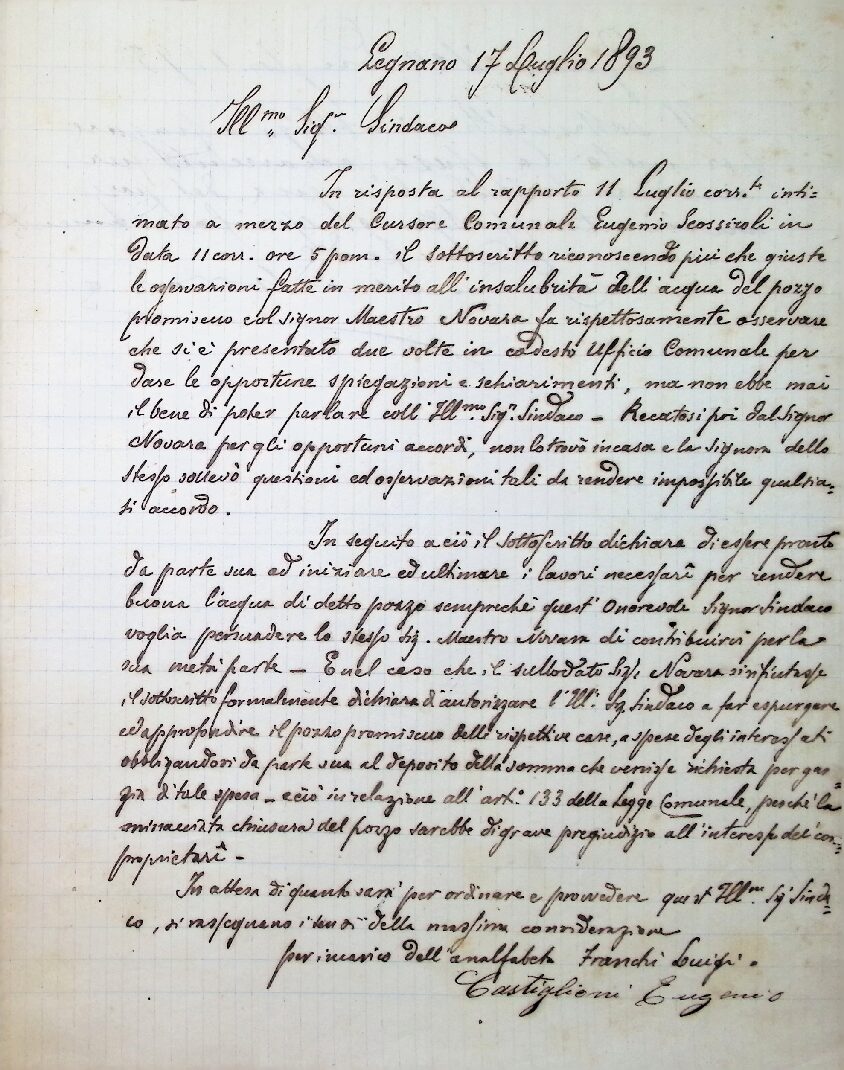 Legnano 17 Luglio 1893
Ill.mo Sig.r Sindaco
In risposta al rapporto 11 Luglio corr.te inti=
mato a mezzo del Cursore Comunale Eugenio in
data 11 corr. ore 5 pom. il sottoscritto riconoscendo più che giuste
le osservazioni fatte in merito all'insalubrità dell'acqua del pozzo
promiscuo col signor Maestro Novara fa rispettosamente osservare
che si è presentato due volte in codesto Ufficio Comunale per
dare le opportune spiegazioni e schiarimenti, ma non ebbe mai
il bene di poter parlare coll'Ill.mo Sig.r Sindaco – Recatosi poi dal Signor
Novara per gli opportuni accordi, non lo trovò in casa e la Signora dello
stesso sollevò questioni ed osservazioni tali da rendere impossibile qualsia=
si accordo.
In seguito a ciò il sottoscritto dichiara di essere pronto
da parte sua ad iniziare ed ultimare i lavori necessari per rendere
buona l'acqua di detto pozzo sempreché quest'Onorevole Signor Sindaco
voglia persuadere lo stesso Sig. Maestro Novara di contribuirvi per la
sua metà parte – E nel caso che il sullodato Sig. Novara si rifiutasse
il sottoscritto formalmente dichiara d'autorizzare l'Ill. Sig. Sindaco a far espurgare
ed approfondire il pozzo promiscuo delle rispettive case, a spese degli interessati
obbligandosi da parte sua al deposito della somma che venisse richiesta per gar=
zia di tale spesa – e ciò in relazione all'art.o 133 della Legge Comunale, perché la
minacciata chiusura del pozzo sarebbe di grave pregiudizio all'interesse dei com=
proprietari –
In attesa di quanto sarà per ordinare e provvedere quest'Ill.mo Sig. Sinda=
co, si rassegnano i sensi della massima considerazione
per incarico dell'analfabeta Franchi Luigi.
Castiglioni Eugenio